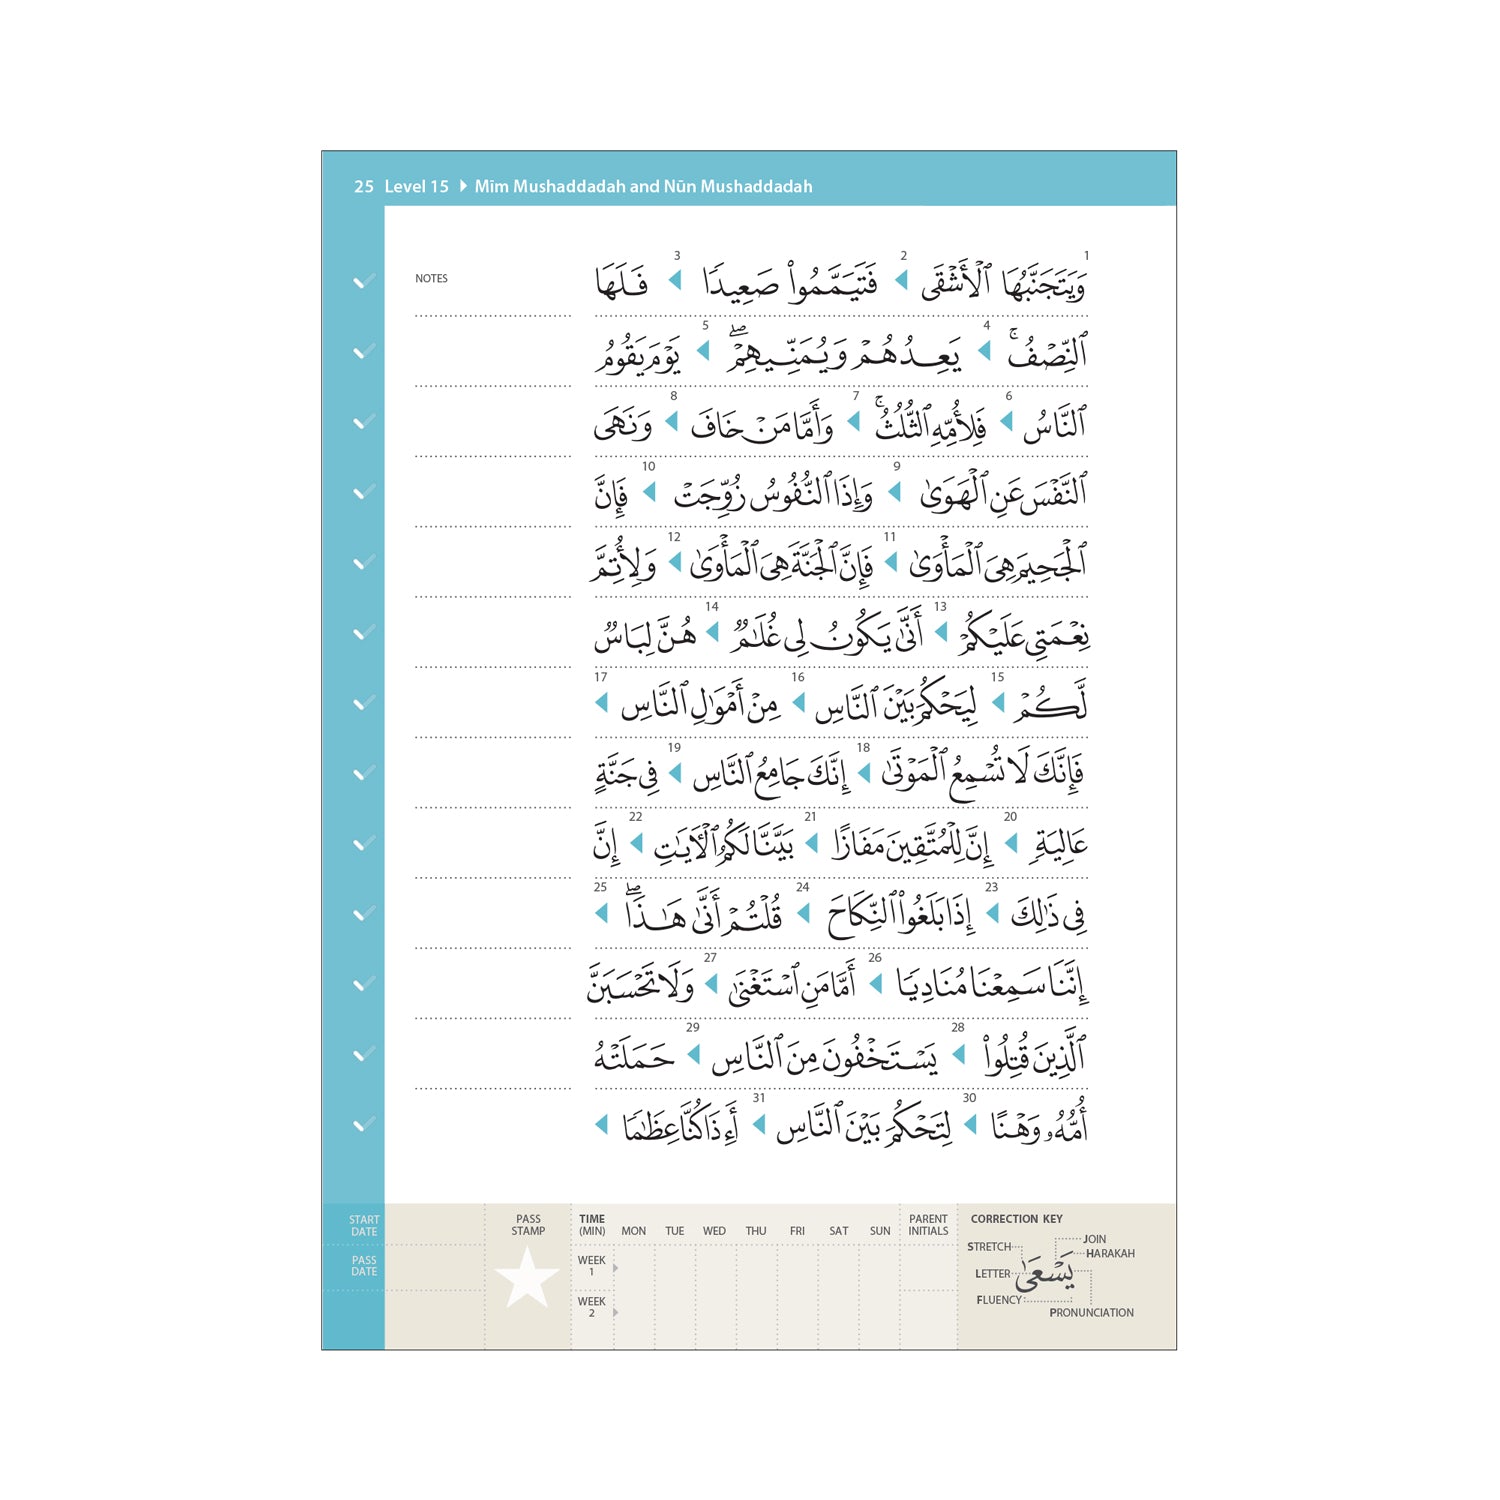 25 Level 15 Mīm Mushaddadah and Nūn Mushaddadah
NOTES
1 وَيَتَجَنَّبُهَا ٱلْأَشْقَى 2 فَتَيَمَّمُوا۟ صَعِيدًا 3 فَلَهَا
ٱلنِّصْفُ ۚ 4 يَعِدُهُمْ وَيُمَنِّيهِمْ ۖ 5 يَوْمَ يَقُومُ
ٱلنَّاسُ 6 فَلِأُمِّهِ ٱلثُّلُثُ ۚ 7 وَأَمَّا مَنْ خَافَ 8 وَنَهَى
ٱلنَّفْسَ عَنِ ٱلْهَوَىٰ 9 وَإِذَا ٱلنُّفُوسُ زُوِّجَتْ 10 فَإِنَّ
ٱلْجَحِيمَ هِىَ ٱلْمَأْوَىٰ 11 فَإِنَّ ٱلْجَنَّةَ هِىَ ٱلْمَأْوَىٰ 12 وَلِأُتِمَّ
نِعْمَتِى عَلَيْكُمْ 13 أَنَّىٰ يَكُونُ لِى غُلَـٰمٌ 14 هُنَّ لِبَاسٌ
لَّكُمْ 15 لِيَحْكُمَ بَيْنَ ٱلنَّاسِ 16 مِنْ أَمْوَٰلِ ٱلنَّاسِ 17
فَإِنَّكَ لَا تُسْمِعُ ٱلْمَوْتَىٰ 18 إِنَّكَ جَامِعُ ٱلنَّاسِ 19 فِى جَنَّةٍ
عَالِيَةٍ 20 إِنَّ لِلْمُتَّقِينَ مَفَازًا 21 بَيَّنَّا لَكُمُ ٱلْـَٔايَـٰتِ 22 إِنَّ
فِى ذَٰلِكَ 23 إِذَا بَلَغُوا۟ ٱلنِّكَاحَ 24 قُلْتُمْ أَنَّىٰ هَـٰذَا ۖ 25
إِنَّنَا سَمِعْنَا مُنَادِيًا 26 أَمَّا مَنِ ٱسْتَغْنَىٰ 27 وَلَا تَحْسَبَنَّ
ٱلَّذِينَ قُتِلُوا۟ 28 يَسْتَخْفُونَ مِنَ ٱلنَّاسِ 29 حَمَلَتْهُ
أُمُّهُۥ وَهْنًا 30 لِتَحْكُمَ بَيْنَ ٱلنَّاسِ 31 أَءِذَا كُنَّا عِظَـٰمًا
START DATE
PASS DATE
PASS STAMP
TIME (MIN) MON TUE WED THU FRI SAT SUN
WEEK 1
WEEK 2
PARENT INITIALS
CORRECTION KEY
STRETCH
JOIN
HARAKAH
LETTER
يَسْعَىٰ
FLUENCY
PRONUNCIATION